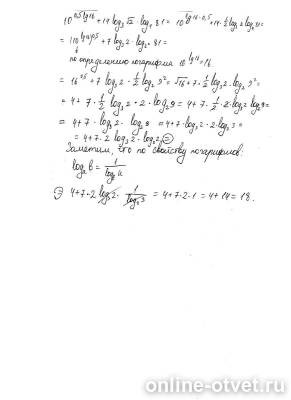 10^{0,5 lg 16} + 14 log₃ √2 · log₄ 81 = 10^{lg 16 · 0,5} + 14 · ½ log₃ 2 log₄ 81 =
= (10^{lg 16})^{0,5} + 7 log₃ 2 · log₂² 81 =
по определению логарифма 10^{lg 16} = 16
= 16^{0,5} + 7 log₃ 2 · ½ log₂ 9² = √16 + 7 · ½ log₃ 2 · log₂ 9² =
= 4 + 7 · ½ log₃ 2 · 2 · log₂ 9 = 4 + 7 · ½ · 2 · log₃ 2 log₂ 9 =
= 4 + 7 · log₃ 2 · log₂ 9 = 4 + 7 · log₃ 2 · 2 log₂ 3 =
= 4 + 7 · 2 log₃ 2 · log₂ 3 =
Заметим, что по свойству логарифмов:
logₐ b = 1 / log_b a
= 4 + 7 · 2 log₃ 2 · 1 / log₃ 2 = 4 + 7 · 2 · 1 = 4 + 14 = 18.
online-otvet.ru